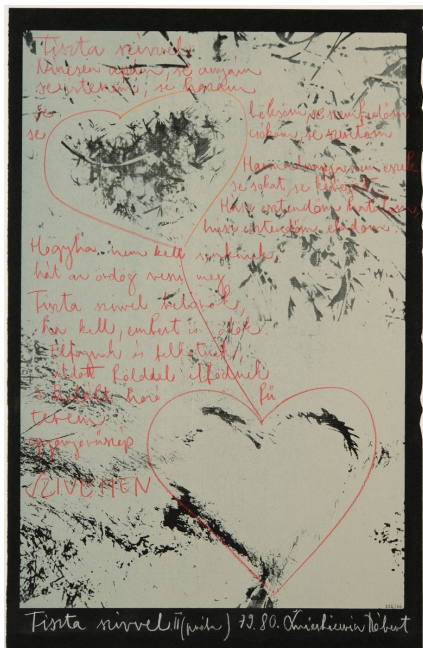 Tiszta szívvel
Nincsen apám, se anyám
se istenem, se hazám
se bölcsőm, se szemfedőm
se csókom, se szeretőm
Harmadnapja nem eszek
se sokat, se keveset
Húsz esztendőm hatalom,
húsz esztendőm eladom
Hogyha nem kell senkinek
hát az ördög veszi meg
Tiszta szívvel betörök,
ha kell, embert is ölök
Elfognak és felkötnek
áldott földdel elfödnek
s halált hozó fű
terem
gyönyörűszép
SZIVEMEN
Tiszta szívvel II (próba) 79.80. Róbert